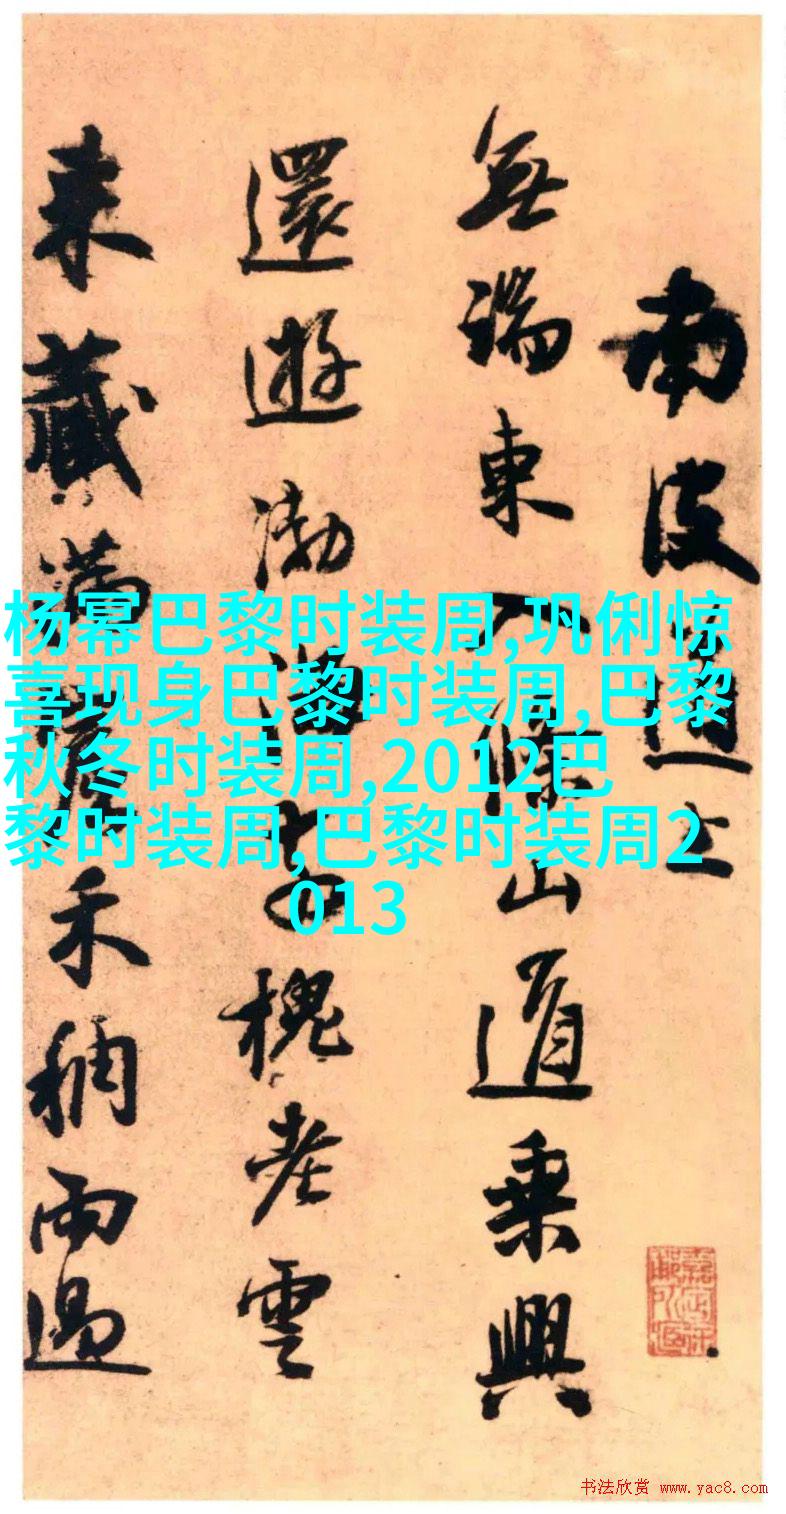 南皮道上
無端東入條山道乘興
還遊渤海
槐老雲
來藏滿
禾稠雨過
杨幂巴黎时装周,巩俐惊
喜现身巴黎时装周,巴黎
秋冬时装周,2012巴
黎时装周,巴黎时装周2
013
书法欣赏 www.yac8.com